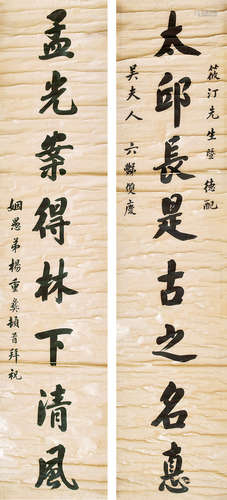 筱汀先生暨 德配
太邱長是古之名惪
吳夫人 六豑雙慶
孟光案得林下清風
姻愚弟楊重頓首拜祝